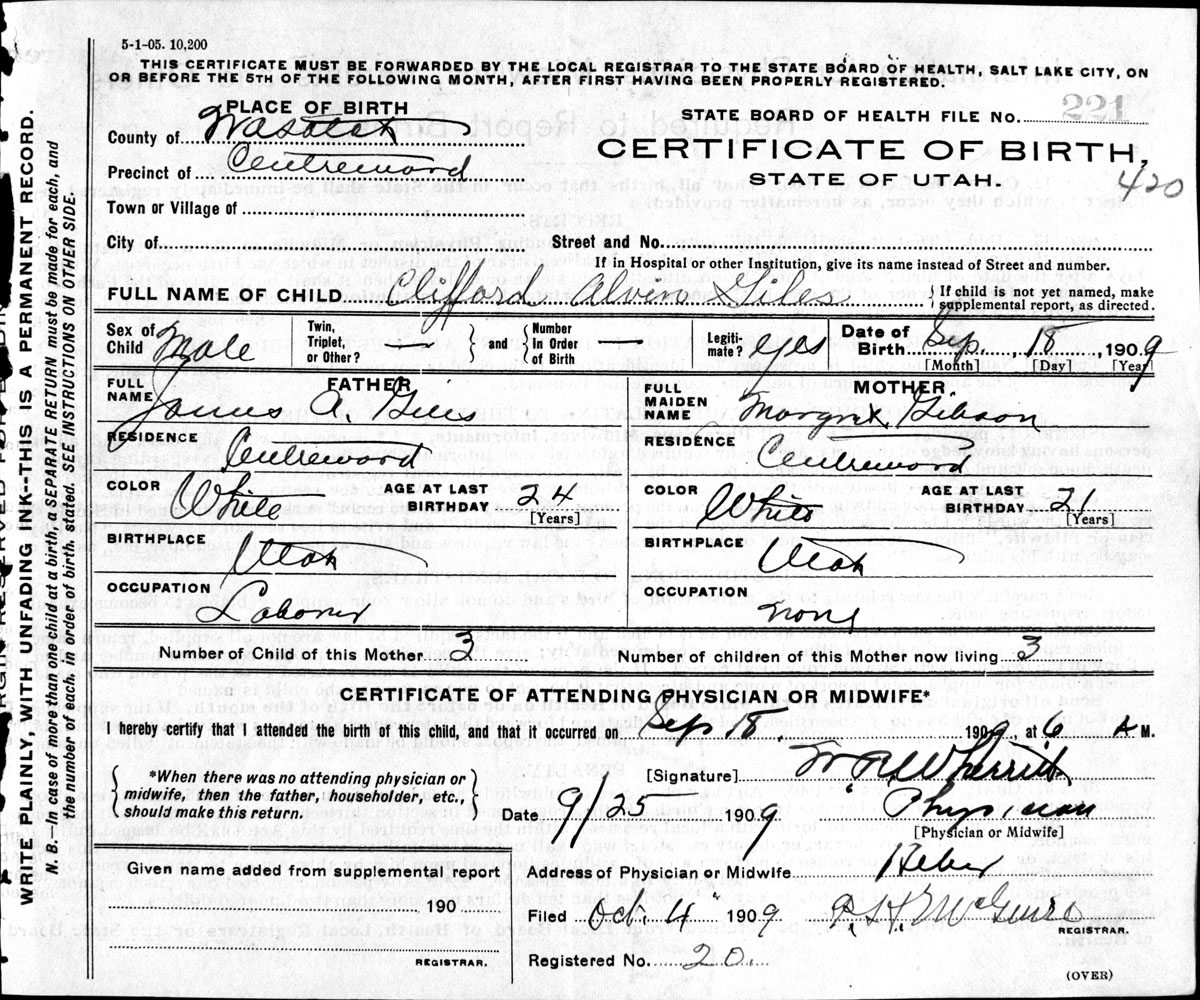 5-1-05. 10,200
THIS CERTIFICATE MUST BE FORWARDED BY THE LOCAL REGISTRAR TO THE STATE BOARD OF HEALTH, SALT LAKE CITY, ON
OR BEFORE THE 5TH OF THE FOLLOWING MONTH, AFTER FIRST HAVING BEEN PROPERLY REGISTERED.
WRITE PLAINLY, WITH UNFADING INK--THIS IS A PERMANENT RECORD.
N. B.—In case of more than one child at a birth, a SEPARATE RETURN must be made for each, and
the number of each, in order of birth, stated. SEE INSTRUCTIONS ON OTHER SIDE.
PLACE OF BIRTH
County of Wasatch
Precinct of Centreward
Town or Village of
City of
STATE BOARD OF HEALTH FILE NO. 221
CERTIFICATE OF BIRTH,
STATE OF UTAH.
420
Street and No.
If in Hospital or other Institution, give its name instead of Street and number.
FULL NAME OF CHILD Clifford Alvin Giles
{ If child is not yet named, make
supplemental report, as directed.
Sex of Child Male
Twin, Triplet, or Other? } and { Number In Order of Birth
Legiti-mate? Yes
Date of Birth Sep. 18, 1909
[Month] [Day] [Year]
FATHER
FULL NAME James A. Giles
RESIDENCE Centreward
COLOR White
AGE AT LAST BIRTHDAY 24
[Years]
BIRTHPLACE Utah
OCCUPATION Laborer
MOTHER
FULL MAIDEN NAME Gibson
RESIDENCE Centreward
COLOR White
AGE AT LAST BIRTHDAY 21
[Years]
BIRTHPLACE Utah
OCCUPATION none
Number of Child of this Mother 3
Number of children of this Mother now living 3
CERTIFICATE OF ATTENDING PHYSICIAN OR MIDWIFE*
I hereby certify that I attended the birth of this child, and that it occurred on Sep 18 1909, at 6 A M.
{ *When there was no attending physician or
midwife, then the father, householder, etc.,
should make this return. }
[Signature] Wherritt
Date 9/25 1909 Physician
[Physician or Midwife]
Given name added from supplemental report
190
REGISTRAR.
Address of Physician or Midwife Heber
Filed Oct. 4 1909 McGuire
REGISTRAR.
Registered No. 20.
(OVER)